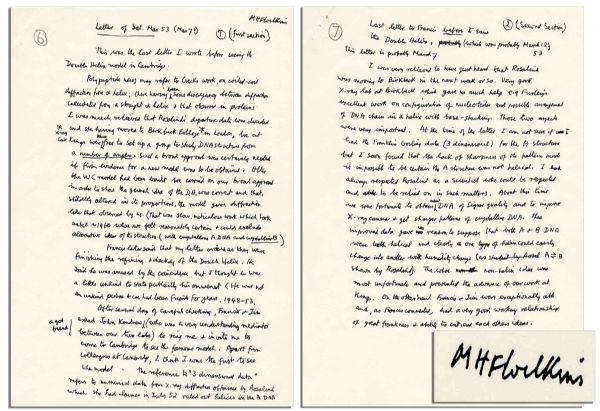 MHFWilkins
6
Letter of Sat. Mar 53 (Mar 7?)
① (first section)
This was the last letter I wrote before seeing the
Double Helix model in Cambridge.
Polypeptide news may refer to Crick's work on coiled-coil
diffraction from α helix, there having been discrepancy between diffraction
calculated from a straight α helix & that observed in proteins.
I was much relieved that Rosalind's departure date was decided
and she having moved to Birkbeck College in London, we at
Kings were free to set up a group to study DNA structure from
a number of angles. Such a broad approach was certainly needed
if firm evidence for a new model was to be obtained. After
the WC model had been built we carried on our broad approach
in order to show the general idea of the D.H. was correct and that,
slightly altered in its proportions, the model gave diffraction
like that observed by us. (That was slow, meticulous work which took
until ~1960 when we felt reasonably certain & could exclude
alternative ideas of its structure (with crystalline A DNA and crystalline B)
Francis later said that my letter arrived as they were
finishing the refining & checking of the Double Helix. He
said he was amused by the coincidence but I thought he was
a little unkind to state publicly his amusement (He was not
an unkind person & we had been friends for years, 1948-53.
After several days of careful checking, Francis & Jim
asked John Kendrew (who was a very understanding mediator
a good friend
between our two labs) to ring me & invite me to
come to Cambridge to see the famous model. Apart from
colleagues at Cambridge, I think I was the first to see
the model. The reference to "3 dimensional data"
refers to numerical data from X-ray diffraction obtained by Rosalind
which she had claimed in July 52 ruled out helices in the A DNA
7
② (Second Section)
Last letter to Francis before I saw
the Double Helix, (which was probably March 12)
53
This letter is probably March 7.
I was very relieved to have just heard that Rosalind
was moving to Birkbeck in the next week or so. Very good
X-ray lab at Birkbeck which gave us much help e.g. Furberg's
excellent work on configuration of nucleotides and possible arrangement
of DNA chain in a helix with base-stacking. Those two aspects
were very important. At the time of the letter I am not sure if I
had the Franklin Gosling data (3 dimensional) for the A structure
but I soon found that the lack of sharpness of the pattern made
it impossible to be certain the A structure was not helical. I had
always respected Rosalind as a scientist who could be respected
and to be relied on in such matters. About this time
we were fortunate to obtain DNA of Signer quality and to improve
X-ray camera & get sharper patterns of crystalline DNA. The
improved data gave us reason to suppose that both A & B DNA
were helical and clearly one type of helix could easily
change into another with humidity change (as studied by A ⇌ B
shown by Rosalind). The idea non-helical idea was
most unfortunate and prevented the advance of our work at
Kings. On the other hand Francis & Jim were exceptionally able
and, as Francis remarks, had a very good working relationship
of great frankness & ability to criticise each others ideas.
MHFWilkins